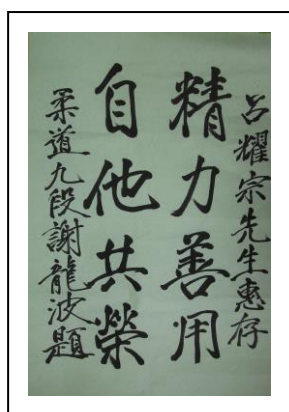 呂耀宗先生惠存
精力善用
自他共榮
柔道九段謝龍波題